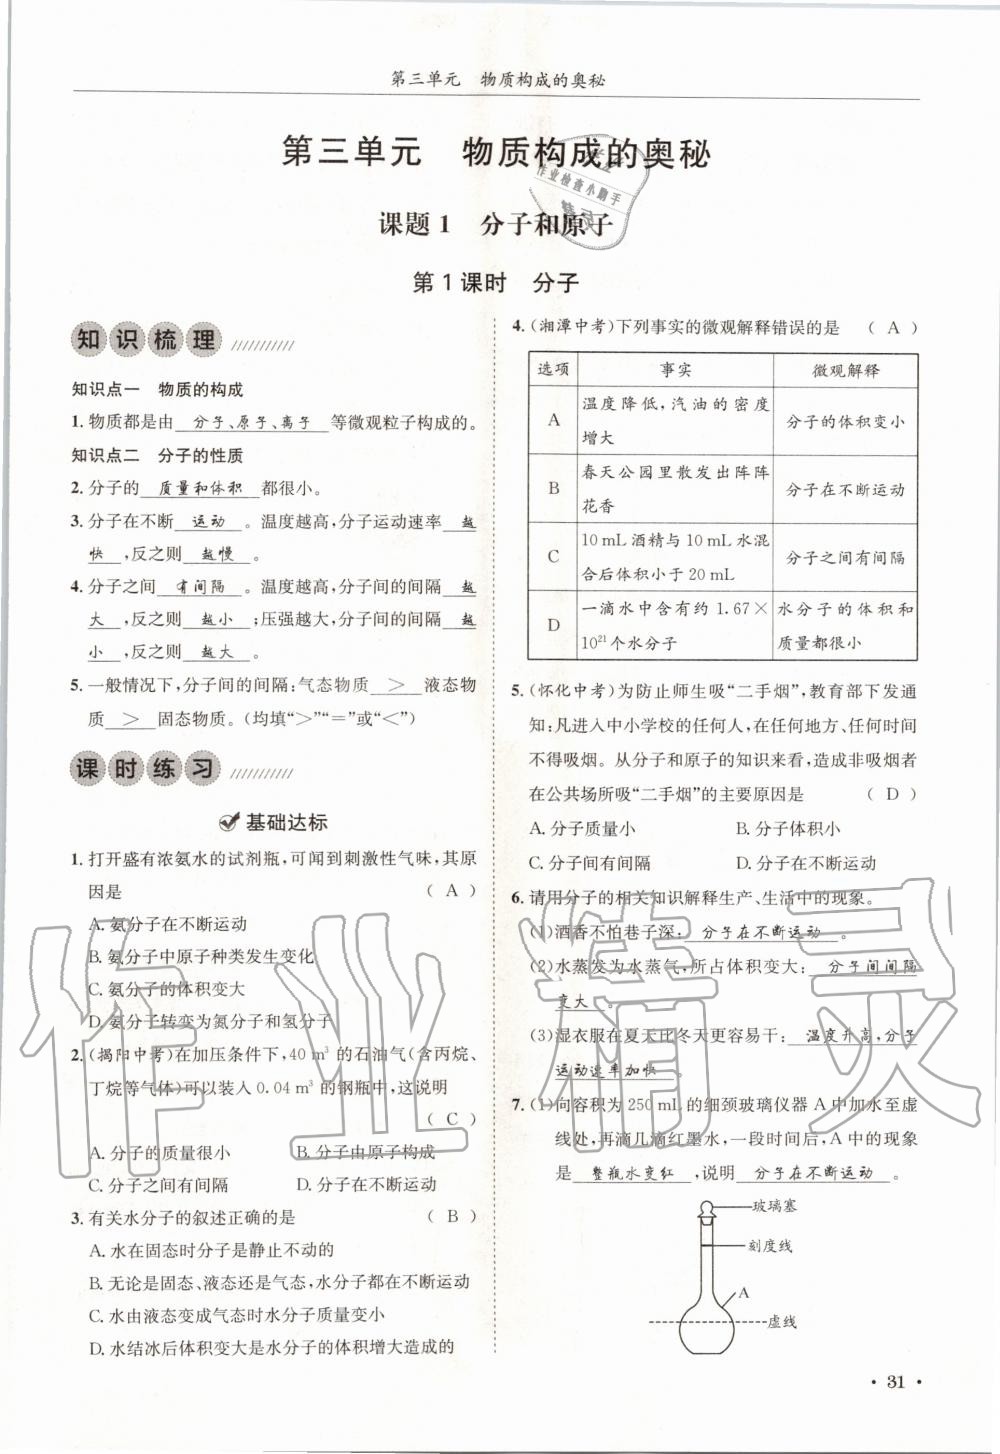 第三单元　物质构成的奥秘
第三单元　物质构成的奥秘
课题1　分子和原子
第1课时　分子
知识梳理
知识点一　物质的构成
1. 物质都是由 分子、原子、离子 等微观粒子构成的。
知识点二　分子的性质
2. 分子的 质量和体积 都很小。
3. 分子在不断 运动 。温度越高,分子运动速率 越
快 ,反之则 越慢 。
4. 分子之间 有间隔 。温度越高,分子间的间隔 越
大 ,反之则 越小 ;压强越大,分子间的间隔 越
小 ,反之则 越大 。
5. 一般情况下,分子间的间隔:气态物质 > 液态物
质 > 固态物质。(均填“>”“=”或“<”)
课时练习
基础达标
1. 打开盛有浓氨水的试剂瓶,可闻到刺激性气味,其原
因是 ( A )
A. 氨分子在不断运动
B. 氨分子中原子种类发生变化
C. 氨分子的体积变大
D. 氨分子转变为氮分子和氢分子
2. (揭阳中考)在加压条件下,40 m³ 的石油气(含丙烷、
丁烷等气体)可以装入 0.04 m³ 的钢瓶中,这说明
( C )
A. 分子的质量很小 B. 分子由原子构成
C. 分子之间有间隔 D. 分子在不断运动
3. 有关水分子的叙述正确的是 ( B )
A. 水在固态时分子是静止不动的
B. 无论是固态、液态还是气态,水分子都在不断运动
C. 水由液态变成气态时水分子质量变小
D. 水结冰后体积变大是水分子的体积增大造成的
4. (湘潭中考)下列事实的微观解释错误的是 ( A )
选项 事实 微观解释
A 温度降低,汽油的密度增大 分子的体积变小
B 春天公园里散发出阵阵花香 分子在不断运动
C 10 mL 酒精与 10 mL 水混合后体积小于 20 mL 分子之间有间隔
D 一滴水中含有约 1.67×10²¹ 个水分子 水分子的体积和质量都很小
5. (怀化中考)为防止师生吸“二手烟”,教育部下发通
知:凡进入中小学校的任何人,在任何地方、任何时间
不得吸烟。从分子和原子的知识来看,造成非吸烟者
在公共场所吸“二手烟”的主要原因是 ( D )
A. 分子质量小 B. 分子体积小
C. 分子间有间隔 D. 分子在不断运动
6. 请用分子的相关知识解释生产、生活中的现象。
(1)酒香不怕巷子深: 分子在不断运动 。
(2)水蒸发为水蒸气,所占体积变大: 分子间间隔
变大 。
(3)湿衣服在夏天比冬天更容易干: 温度升高,分子
运动速率加快 。
7. (1)向容积为 250 mL 的细颈玻璃仪器 A 中加水至虚
线处,再滴几滴红墨水,一段时间后,A 中的现象
是 整瓶水变红 ,说明 分子在不断运动 。
玻璃塞
刻度线
A
虚线
· 31 ·
作业检查小助手
作业精灵